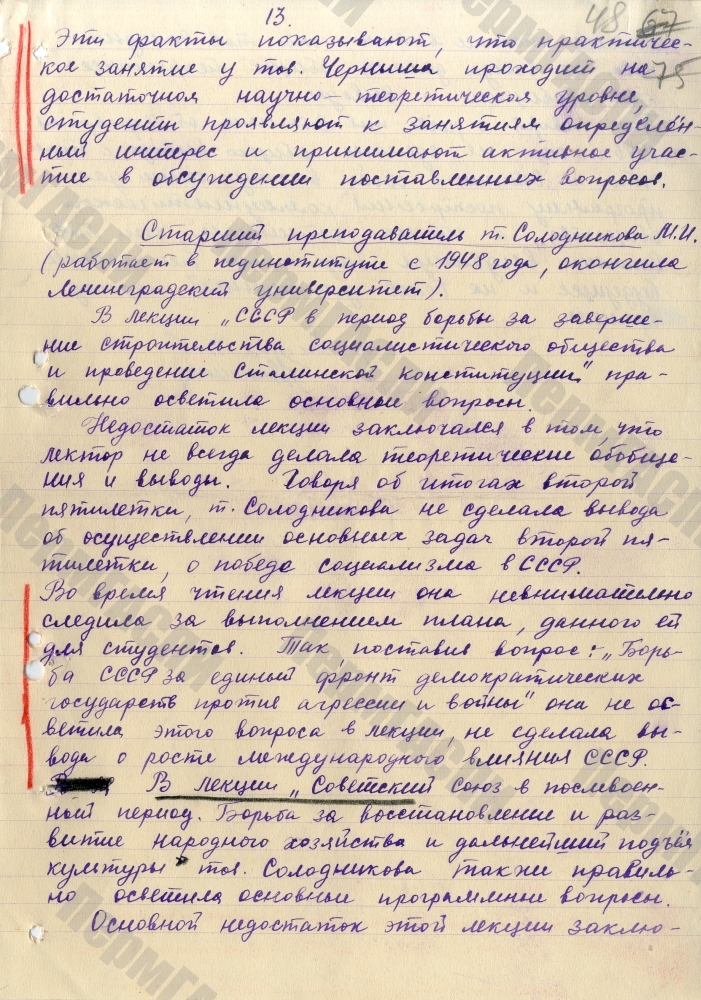 13.
48 67
75
Эти факты показывают, что практичес-
кое занятие у тов. Черныша проходит на
достаточном научно-теоретическом уровне,
студенты проявляют к занятиям определён-
ный интерес и принимают активное учас-
тие в обсуждении поставленных вопросов.
Старший преподаватель т. Солодникова М.И.
(работает в пединституте с 1948 года, окончила
Ленинградский университет).
В лекции „СССР в период борьбы за заверше-
ние строительства социалистического общества
и проведение Сталинской конституции" пра-
вильно осветила основные вопросы.
Недостаток лекции заключался в том, что
лектор не всегда делала теоретические обобще-
ния и выводы. Говоря об итогах второй
пятилетки, т. Солодникова не сделала вывода
об осуществлении основных задач второй пя-
тилетки, о победе социализма в СССР.
Во время чтения лекции она невнимательно
следила за выполнением плана, данного ей
для студентов. Так, поставив вопрос: „Борь-
ба СССР за единый фронт демократических
государств против агрессии и войны" она не ос-
ветила этого вопроса в лекции, не сделала вы-
вода о росте международного влияния СССР.
В лекции „Советский Союз в послевоен-
ный период. Борьба за восстановление и раз-
витие народного хозяйства и дальнейший подъём
культуры" тов. Солодникова также правиль-
но осветила основные программные вопросы.
Основной недостаток этой лекции заклю-